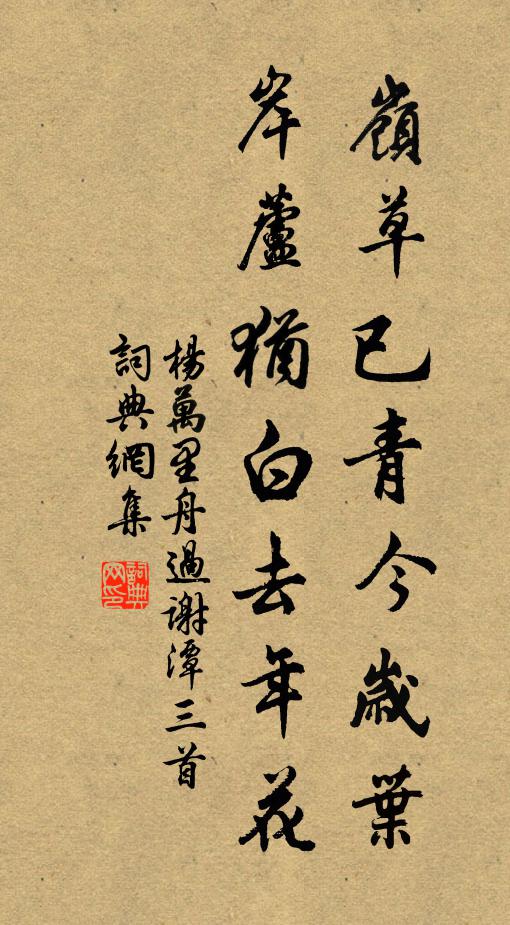 嶺草已青今歲葉
岸蘆猶白去年花
楊萬里舟過謝潭三首
詞典網集
詞典网印